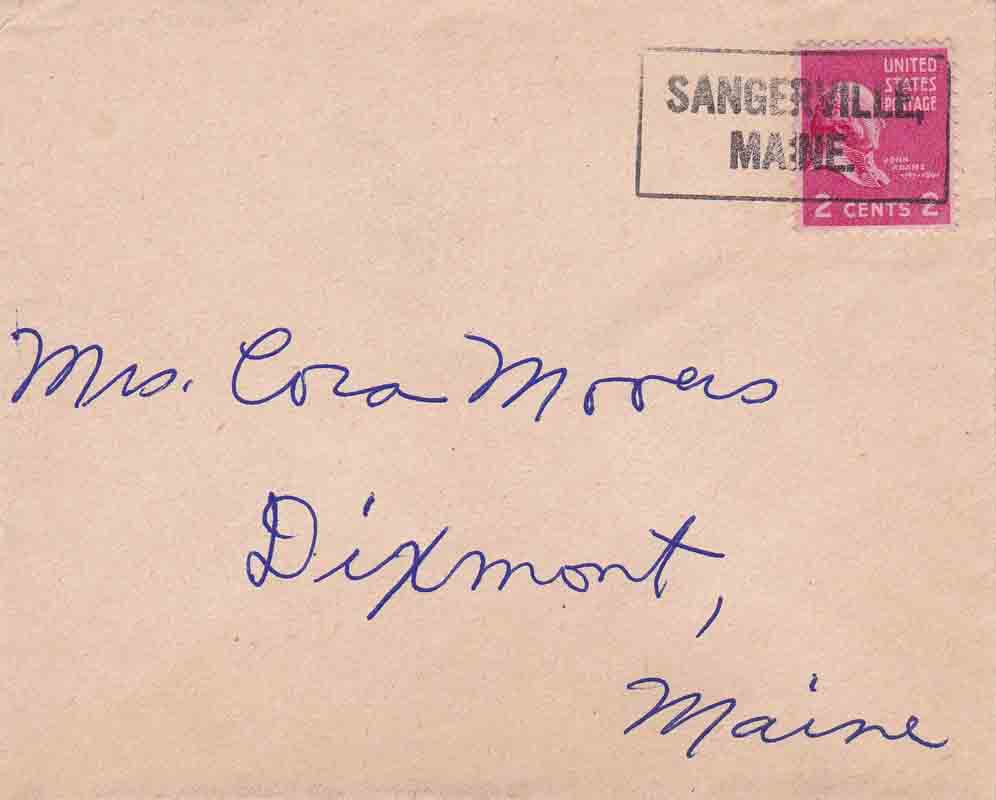 SANGERVILLE,
MAINE.
UNITED
STATES
POSTAGE
JOHN
ADAMS
2 CENTS 2
Mrs. Cora Moores
Dixmont,
Maine